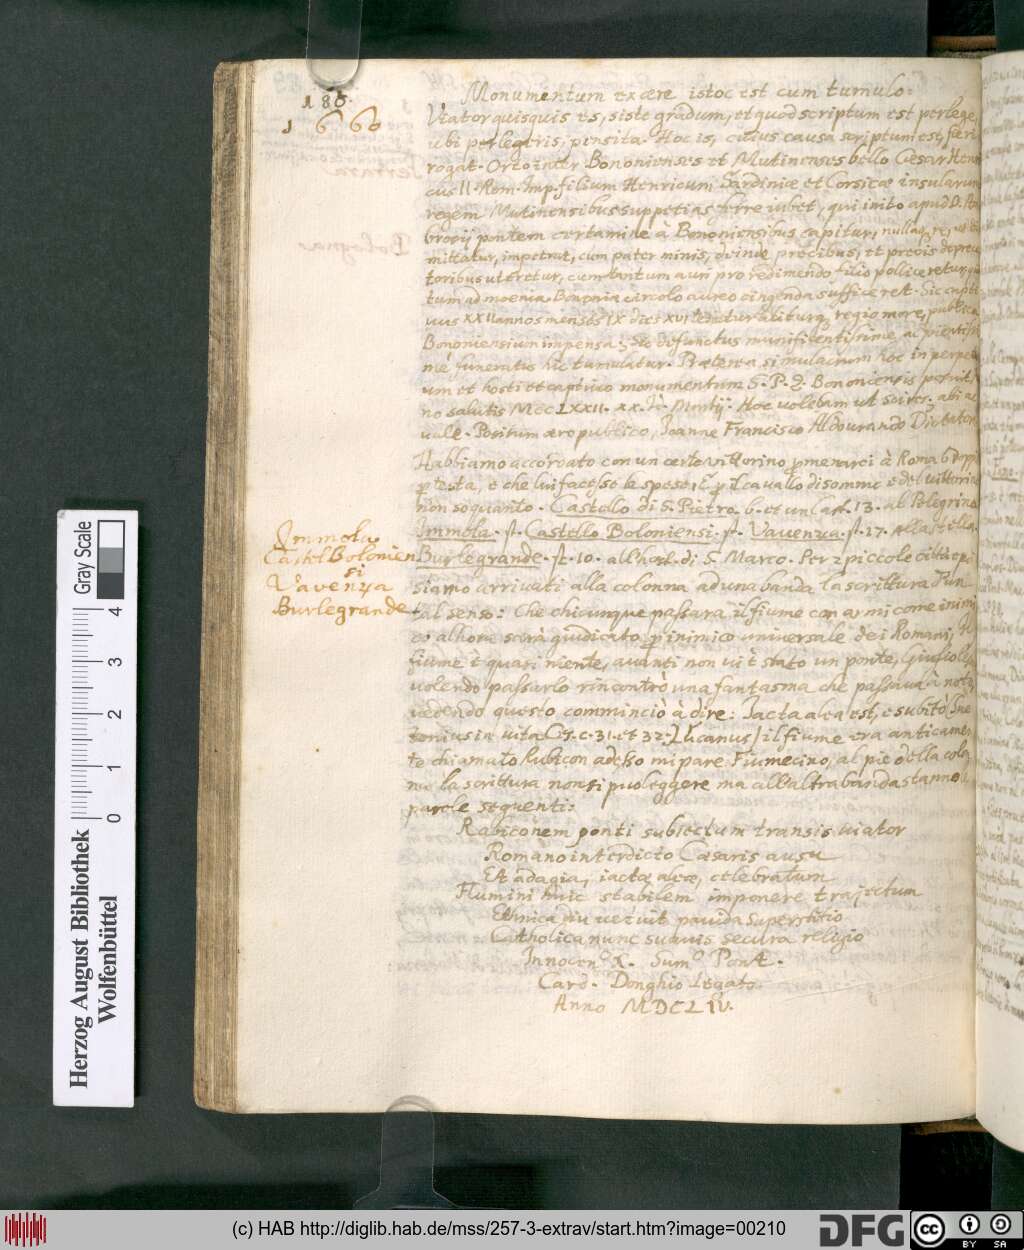 186.
1660
Monumentum ex ære istoc est cum tumulo.
Viator quisquis es, siste gradum, et quod scriptum est perlege,
ubi perlegeris, pensita. Hoc is, cuius causa scriptum est, fieri
rogat. Orto inter Bononienses et Mutinenses bello Cæsar Henri
cus II. Rom. Imp. filium Henricum, Sardiniæ et Corsicæ insularum
regem Mutinensibus suppetias ferre iubet, qui inito apud D. Am
brosij pontem certamine à Bononiensibus capitur, nullaq re, ut di
mittatur, impetrat, cum pater minis, deinde precibus, et precis depreca
toribus uteretur, cum tantum auri pro redimendo filio polliceretur,
tum ad moenia Bononiæ circulo aureo cingenda sufficeret. Sic capti
vus XXII annos menses IX dies XVI tenetur aliturq, regio more, publica
Bononiensium impensa; Sic defunctus munificentissime, ac pientissi
mè funeratus hic tumulatur. Præterea simulacrum hoc in perpetu
um et hosti et captivo monumentum S. P. Q. Bononiensis posuit,
no salutis MCCLXXII. Hoc volebam ut scires, abi ac
vale. Positum ære publico, Joanne Francisco Aldourando Dictatore.
Habbiamo accordato con un certo Vittorino menarci à Roma 6 dopp
testa, e che lui facesse le spese, il cavallo di somme è del vittorino
non so quanto. Castello di S. Pietro. 13. al Pelegrino
Immola. Castello Boloniensi. Vavenza. 17. alla stella.
Burlegrande. 10. all'host. di S. Marco. Per 2 piccole città
siamo arrivati alla colonna ad una banda la scrittura
tal senso: Che chiunque passara il fiume con armi come inimi
co alhora serà giudicato inimico universale dei Romani, il
fiume è quasi niente, avanti non vi è stato un ponte, Giulio
volendo passarlo rincontrò una fantasma che passava à
vedendo questo comminciò à dire: Jacta alea est, e subito Sue
tonius in vita C. 31. et 32. Lucanus il fiume era anticamen
te chiamato Rubicon adesso mi pare Fiumecino, al pie della colon
na la scrittura non si puo leggere ma all'altra banda stanno
parole sequenti:
Rubiconem ponti subiectum transis viator
Romano interdicto Cæsaris ausu
Et adagia, iactæ aleæ, celebratum
Flumini huic stabilem imponere trajectum
Ethnica diu vetuit pavida superstitio
Catholica nunc suavis secura religio
Innocen. X. Sum. Pont.
Card. Donghio Legato
Anno MDCLIV.
Immola
Castel Bolonien
si
Vavenza
Burlegrande
Ferrara
Bologna
Herzog August Bibliothek
Wolfenbüttel
Gray Scale
0 1 2 3 4
(c) HAB http://diglib.hab.de/mss/257-3-extrav/start.htm?image=00210
DFG
cc
BY SA